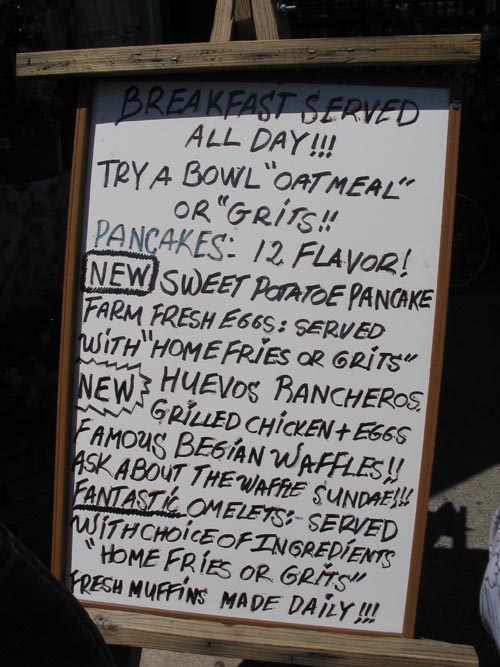 BREAKFAST SERVED
ALL DAY!!!
TRY A BOWL "OATMEAL"
OR "GRITS!!
PANCAKES: 12 FLAVOR!
NEW SWEET POTATOE PANCAKE
FARM FRESH EGGS: SERVED
WITH "HOME FRIES OR GRITS"
NEW HUEVOS RANCHEROS.
GRILLED CHICKEN + EGGS
FAMOUS BEGIAN WAFFLES!!
ASK ABOUT THE WAFFLE SUNDAE!!!
FANTASTIC OMELETS: SERVED
WITH CHOICE OF INGREDIENTS
"HOME FRIES OR GRITS"
FRESH MUFFINS MADE DAILY!!!